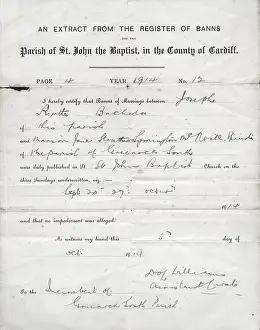 AN EXTRACT FROM THE REGISTER OF BANNS
FOR THE
Parish of St. John the Baptist, in the County of Cardiff.
PAGE 4 YEAR 1914 No. 12
I hereby certify that Banns of Marriage between Joseph
Bachelor
of this parish
and Marion Jane
of the parish of Greenock South
were duly published in St. John Baptist Church on the
three Sundays underwritten, viz.:—
Sept 20th 27th Oct 4th
1914
and that no impediment was alleged.
As witness my hand this 5th day of
Oct 1914
Williams
Assistant Curate
To the Incumbent of
Greenock South Parish